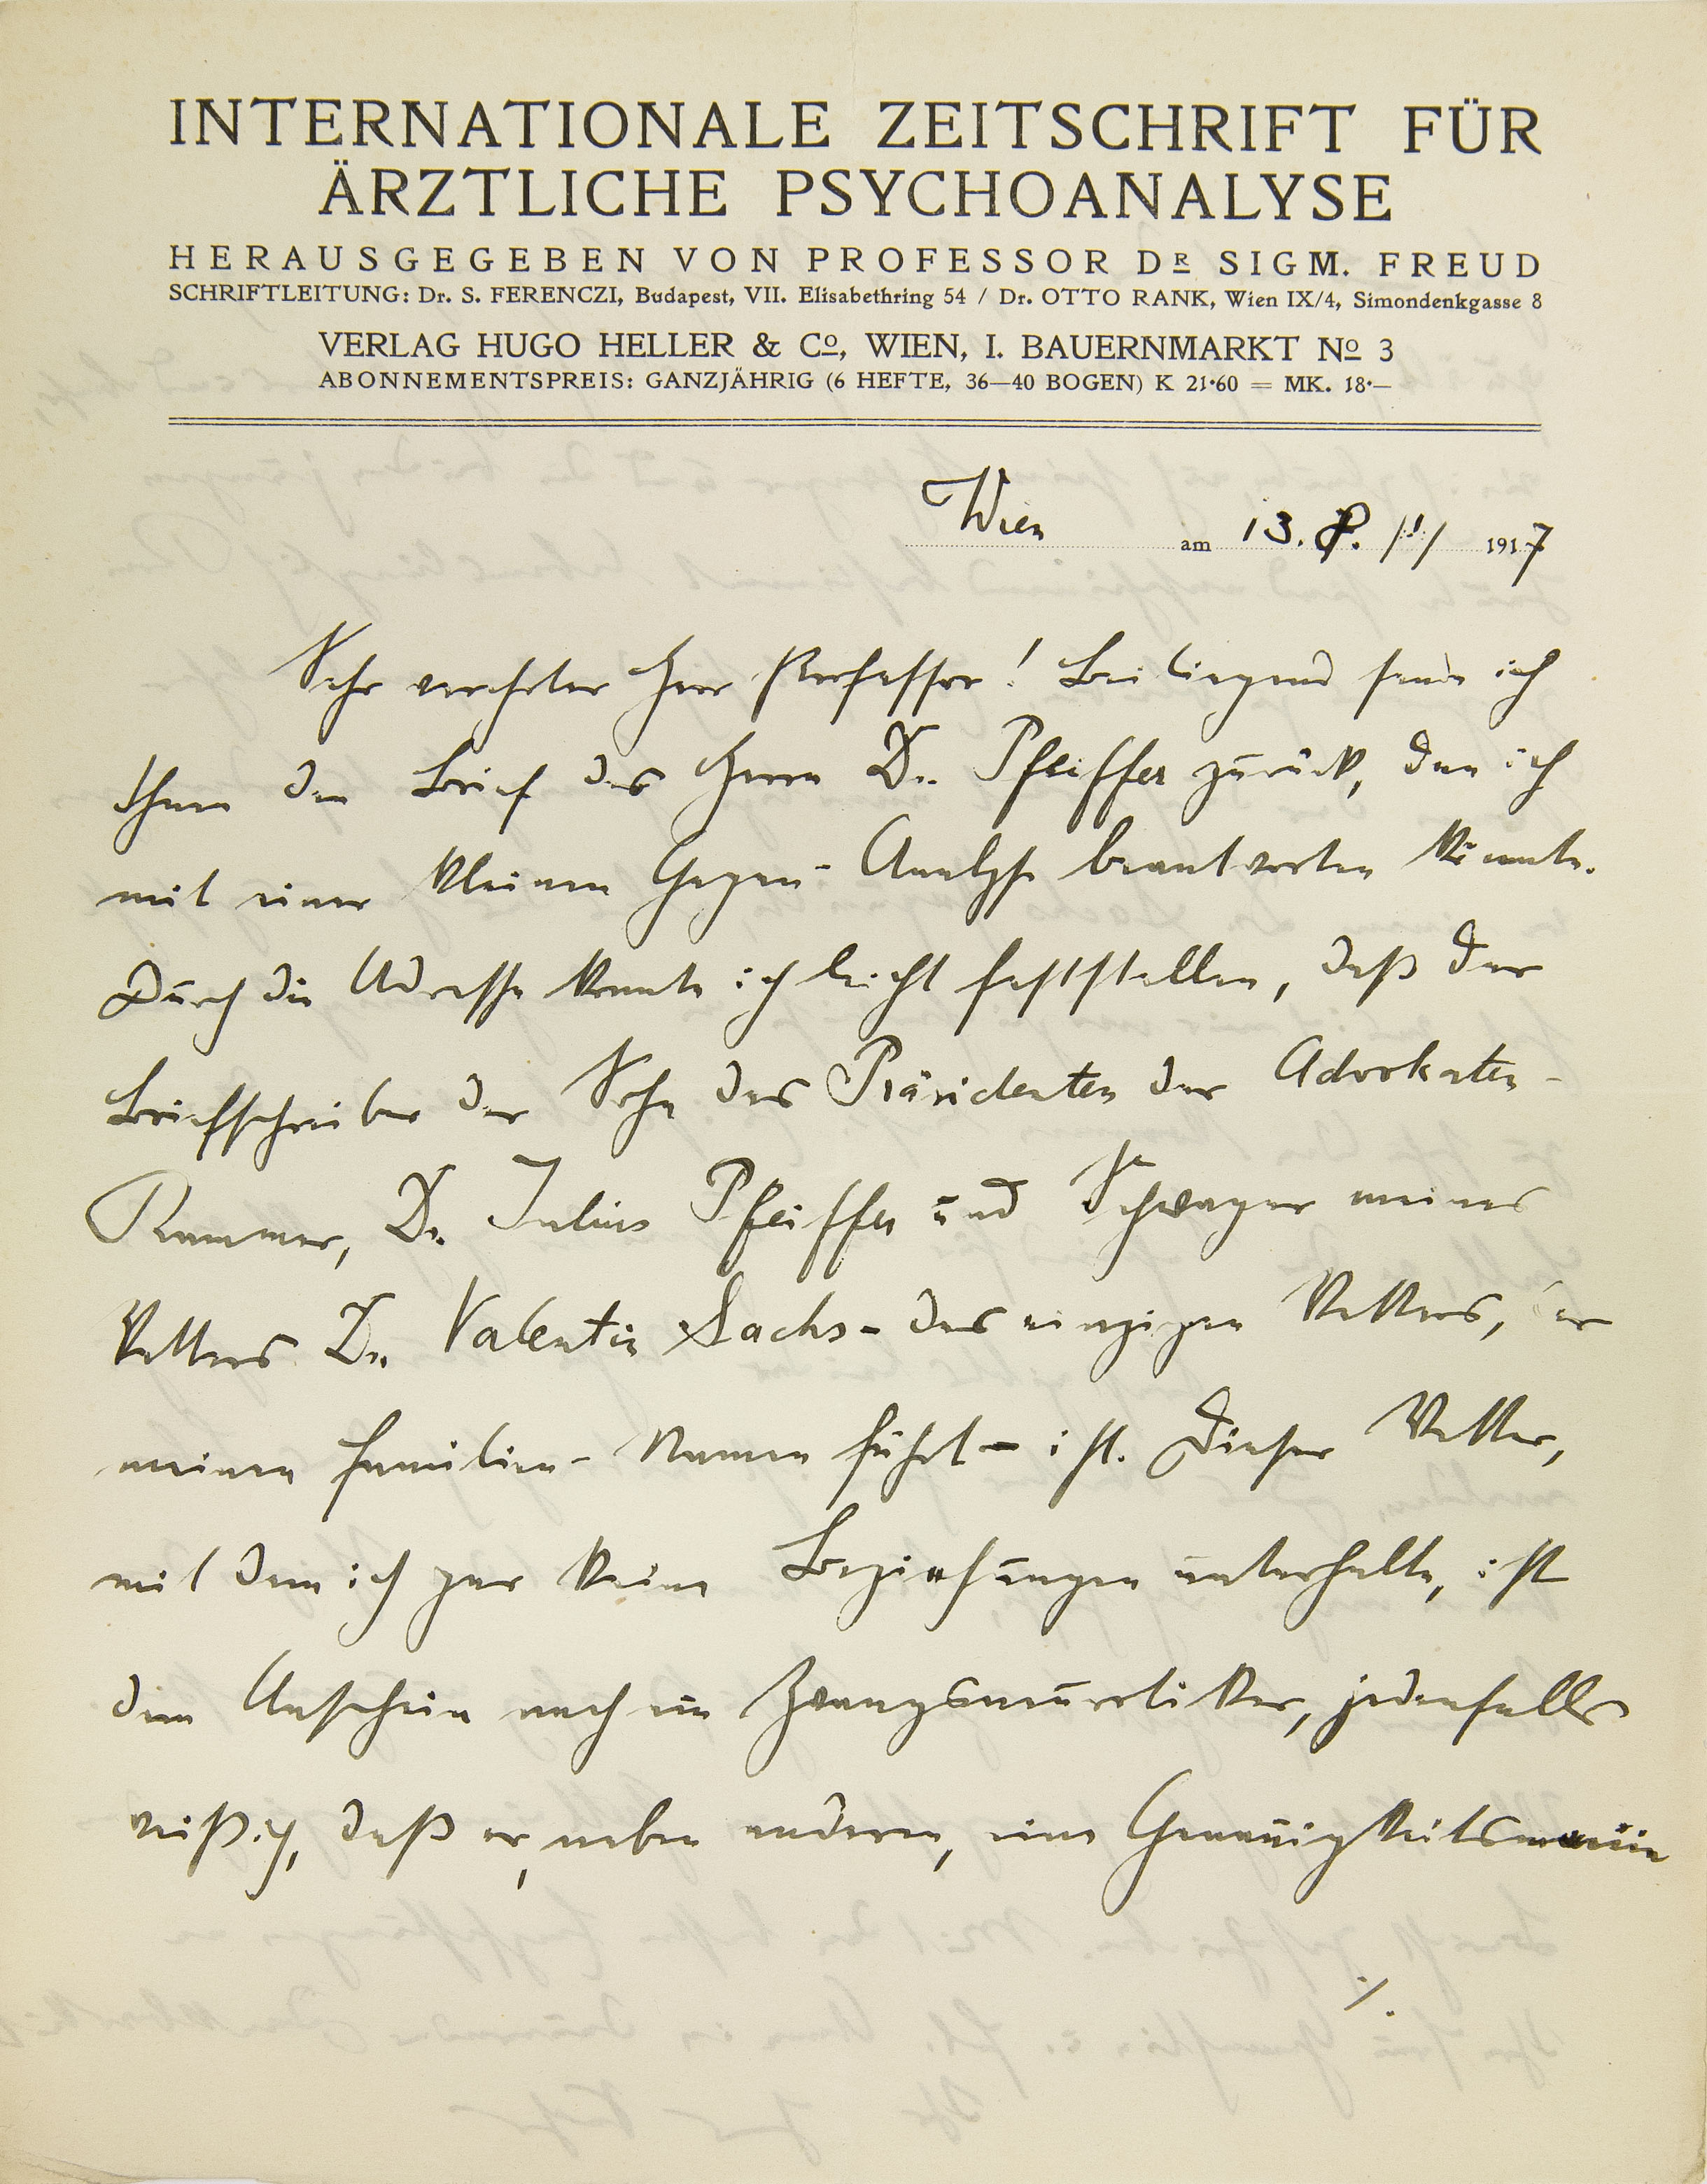 INTERNATIONALE ZEITSCHRIFT FÜR
ÄRZTLICHE PSYCHOANALYSE
HERAUSGEGEBEN VON PROFESSOR DR SIGM. FREUD
SCHRIFTLEITUNG: Dr. S. FERENCZI, Budapest, VII. Elisabethring 54 / Dr. OTTO RANK, Wien IX/4, Simondenkgasse 8
VERLAG HUGO HELLER & Co, WIEN, I. BAUERNMARKT No 3
ABONNEMENTSPREIS: GANZJÄHRIG (6 HEFTE, 36—40 BOGEN) K 21·60 = MK. 18·—
Wien am 13. 8. /!/ 1917
Sehr verehrter Herr Professor! Beiliegend sende ich
Ihnen den Brief des Herrn Dr. Pfeiffer zurück, den ich
mit einer kleinen Gegen-Analyse beantworten könnte.
Durch die Adresse konnte ich leicht feststellen, daß der
Briefschreiber der Sohn des Präsidenten der Advokaten-
Kammer, Dr. Julius Pfeiffer und Schwager meines
Vetters Dr. Valentin Sachs - des einzigen Vetters, der
meinen Familien-Namen führt - ist. Dieser Vetter,
mit dem ich gar keine Beziehungen unterhalte, ist
dem Anschein nach ein Zwangsneurotiker, jedenfalls
weiß ich, daß er, neben anderen, eine Genauigkeitsmanie
./.